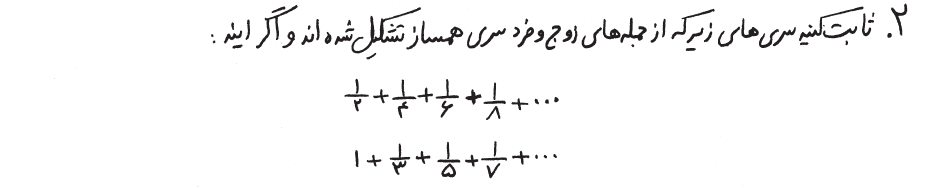 ۲. ثابت کنید سری های زیر که از جمله های زوج و فرد سری همساز تشکیل شده اند واگرایند :
۱/۲ + ۱/۴ + ۱/۶ + ۱/۸ + ...
۱ + ۱/۳ + ۱/۵ + ۱/۷ + ...